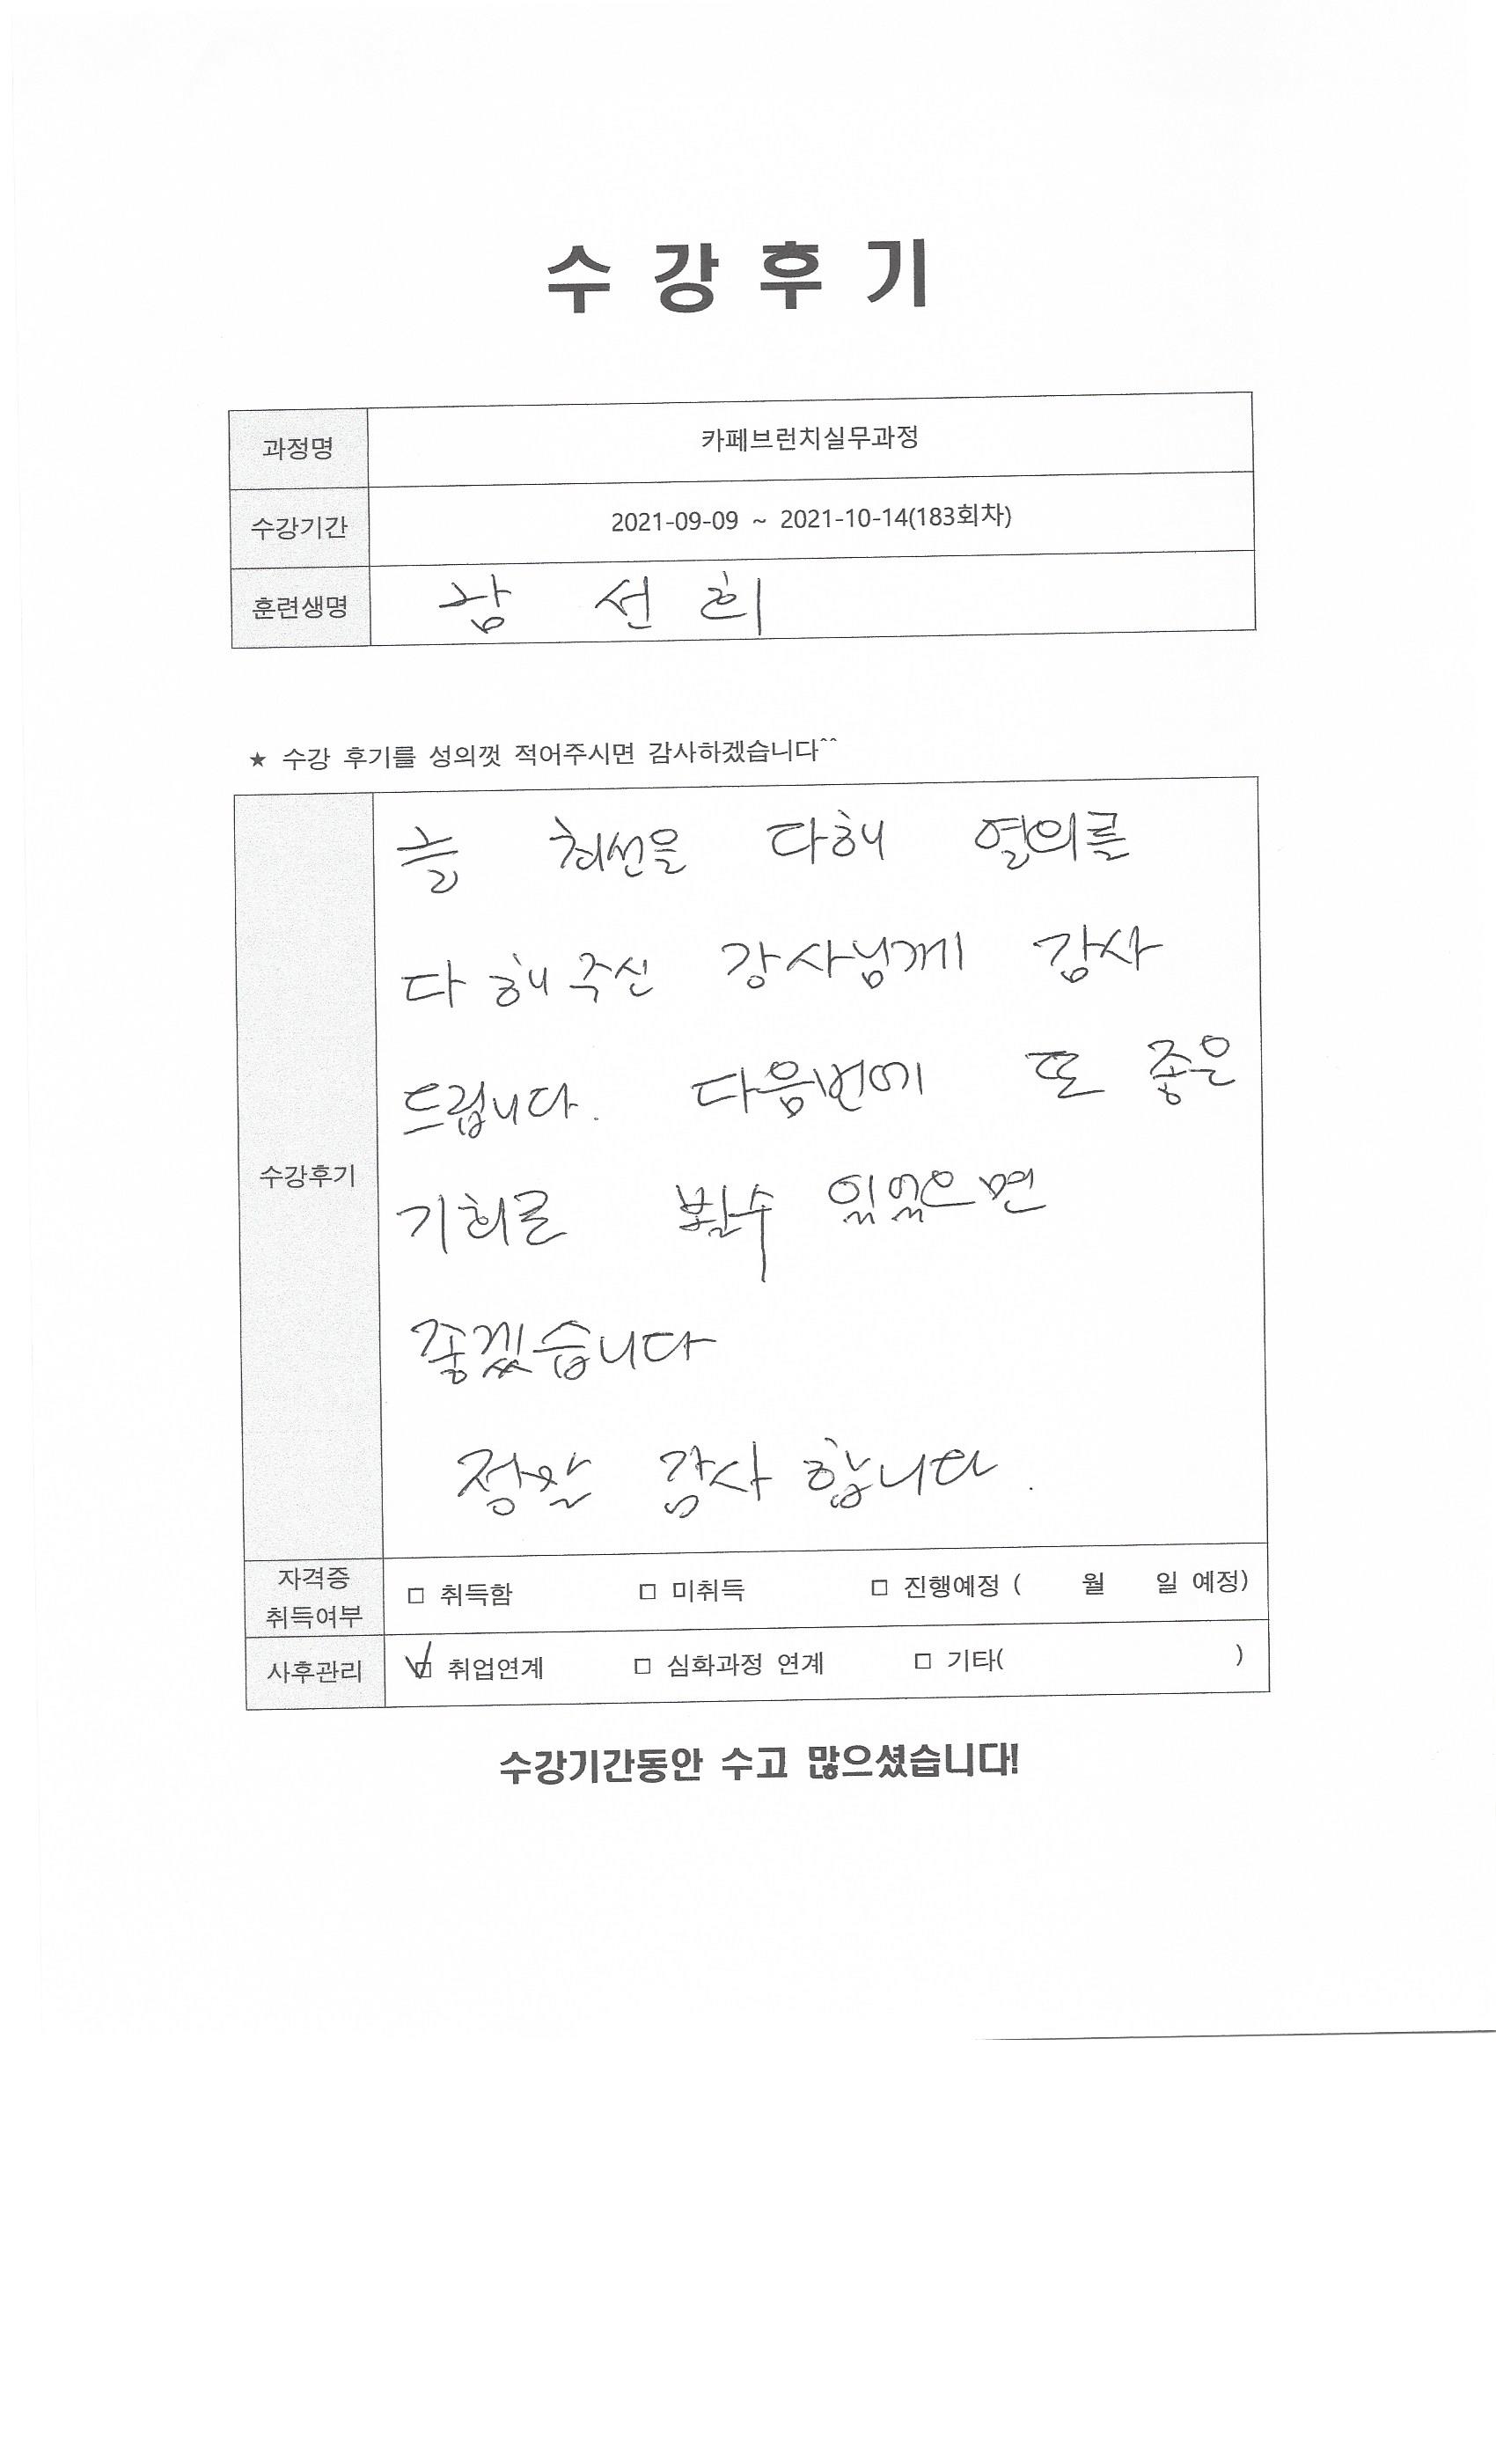 수 강 후 기
과정명 카페브런치실무과정
수강기간 2021-09-09 ~ 2021-10-14(183회차)
훈련생명 선 희
★ 수강 후기를 성의껏 적어주시면 감사하겠습니다^^
늘 최선을 다해 열의를
다 해주신 강사님께 감사
드립니다. 다음번에 또 좋은
수강후기
기회로 뵐수 있었으면
좋겠습니다
정말 감사합니다.
자격증
취득여부 □ 취득함 □ 미취득 □ 진행예정 ( 월 일 예정)
사후관리 ☑ 취업연계 □ 심화과정 연계 □ 기타( )
수강기간동안 수고 많으셨습니다!